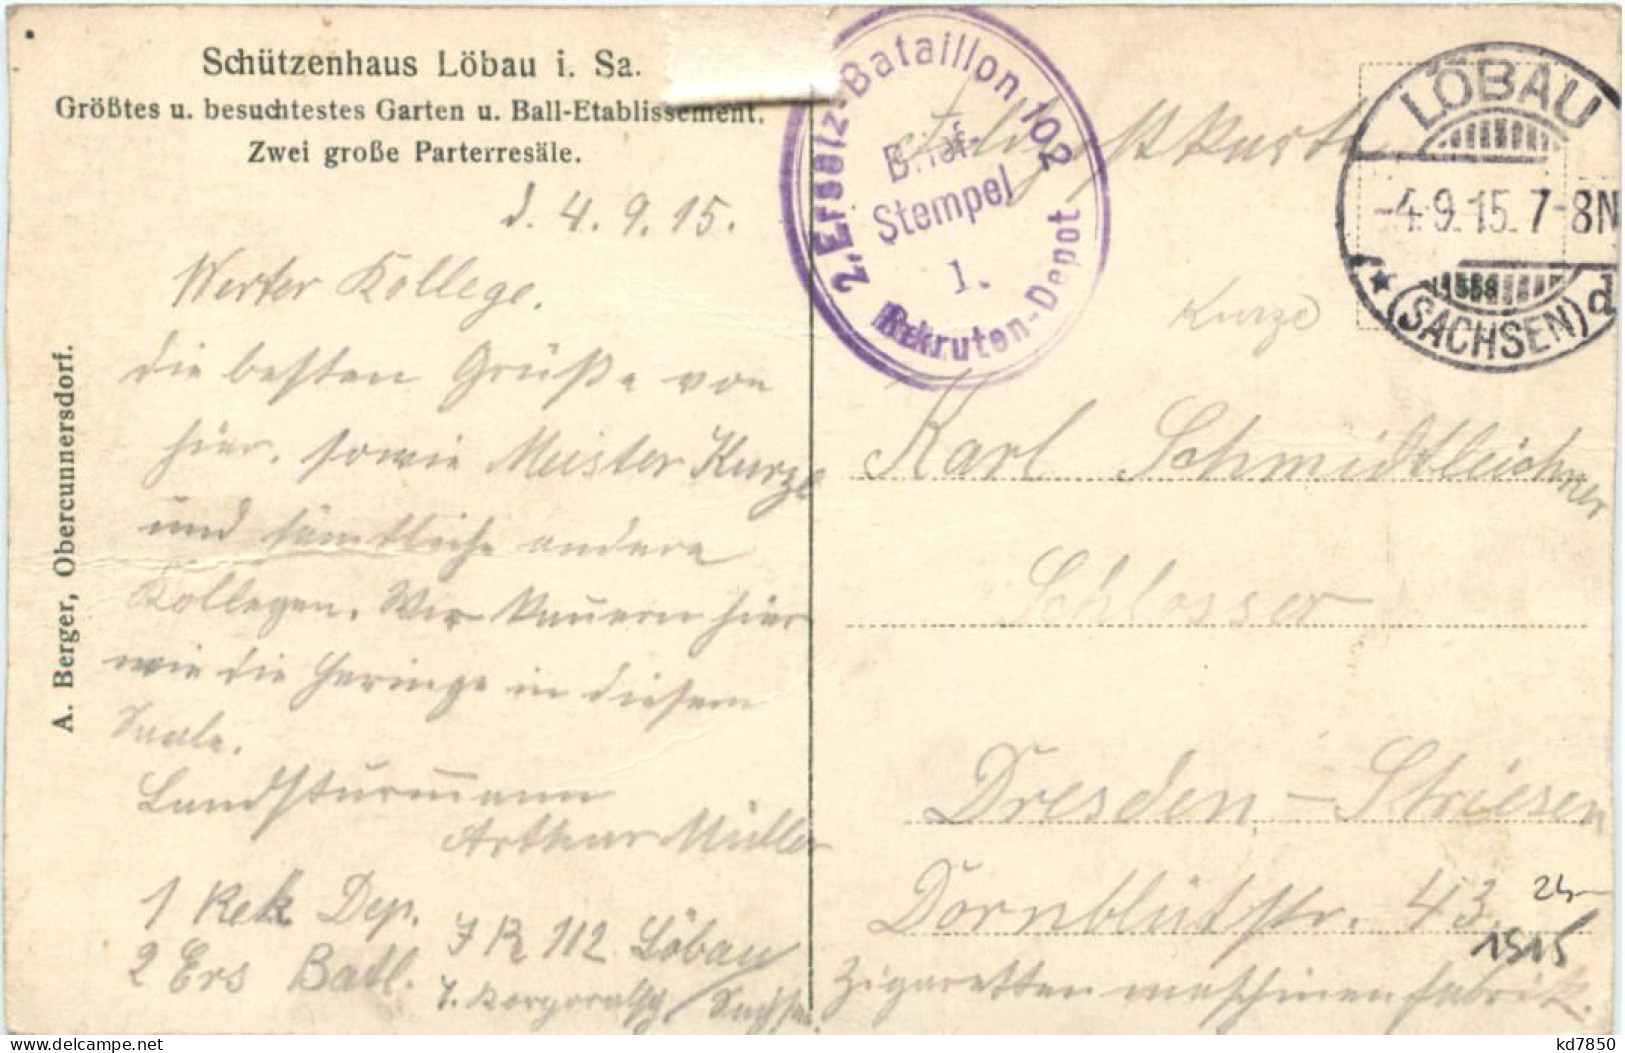 Schützenhaus Löbau i. Sa.
Größtes u. besuchtestes Garten u. Ball-Etablissement.
Zwei große Parterresäle.
A. Berger, Obercunnersdorf.
d. 4. 9. 15.
Werter Kollege.
die besten Grüße von
hier, sowie Meister Kurze
und sämtliche andere
Kollegen. Wir kauern hier
wie die Heringe in diesem
Saale.
Landsturmmann
Arthur Müller
1 Rek Dep.
2 Ers Batl.
J R 112 Löbau
7. Korporalsch / Sachsen
2. Ersatz-Bataillon 102
Brief-
Stempel
1.
Rekruten-Depot
Feldpostkarte
LÖBAU
-4.9.15. 7-8N
* (SACHSEN) d
Kurze
Karl Schmidtleichner
Schlosser
Dresden-Striesen
Dornblütstr. 43
Zigarettenmaschinenfabrik.
1515
kd7850